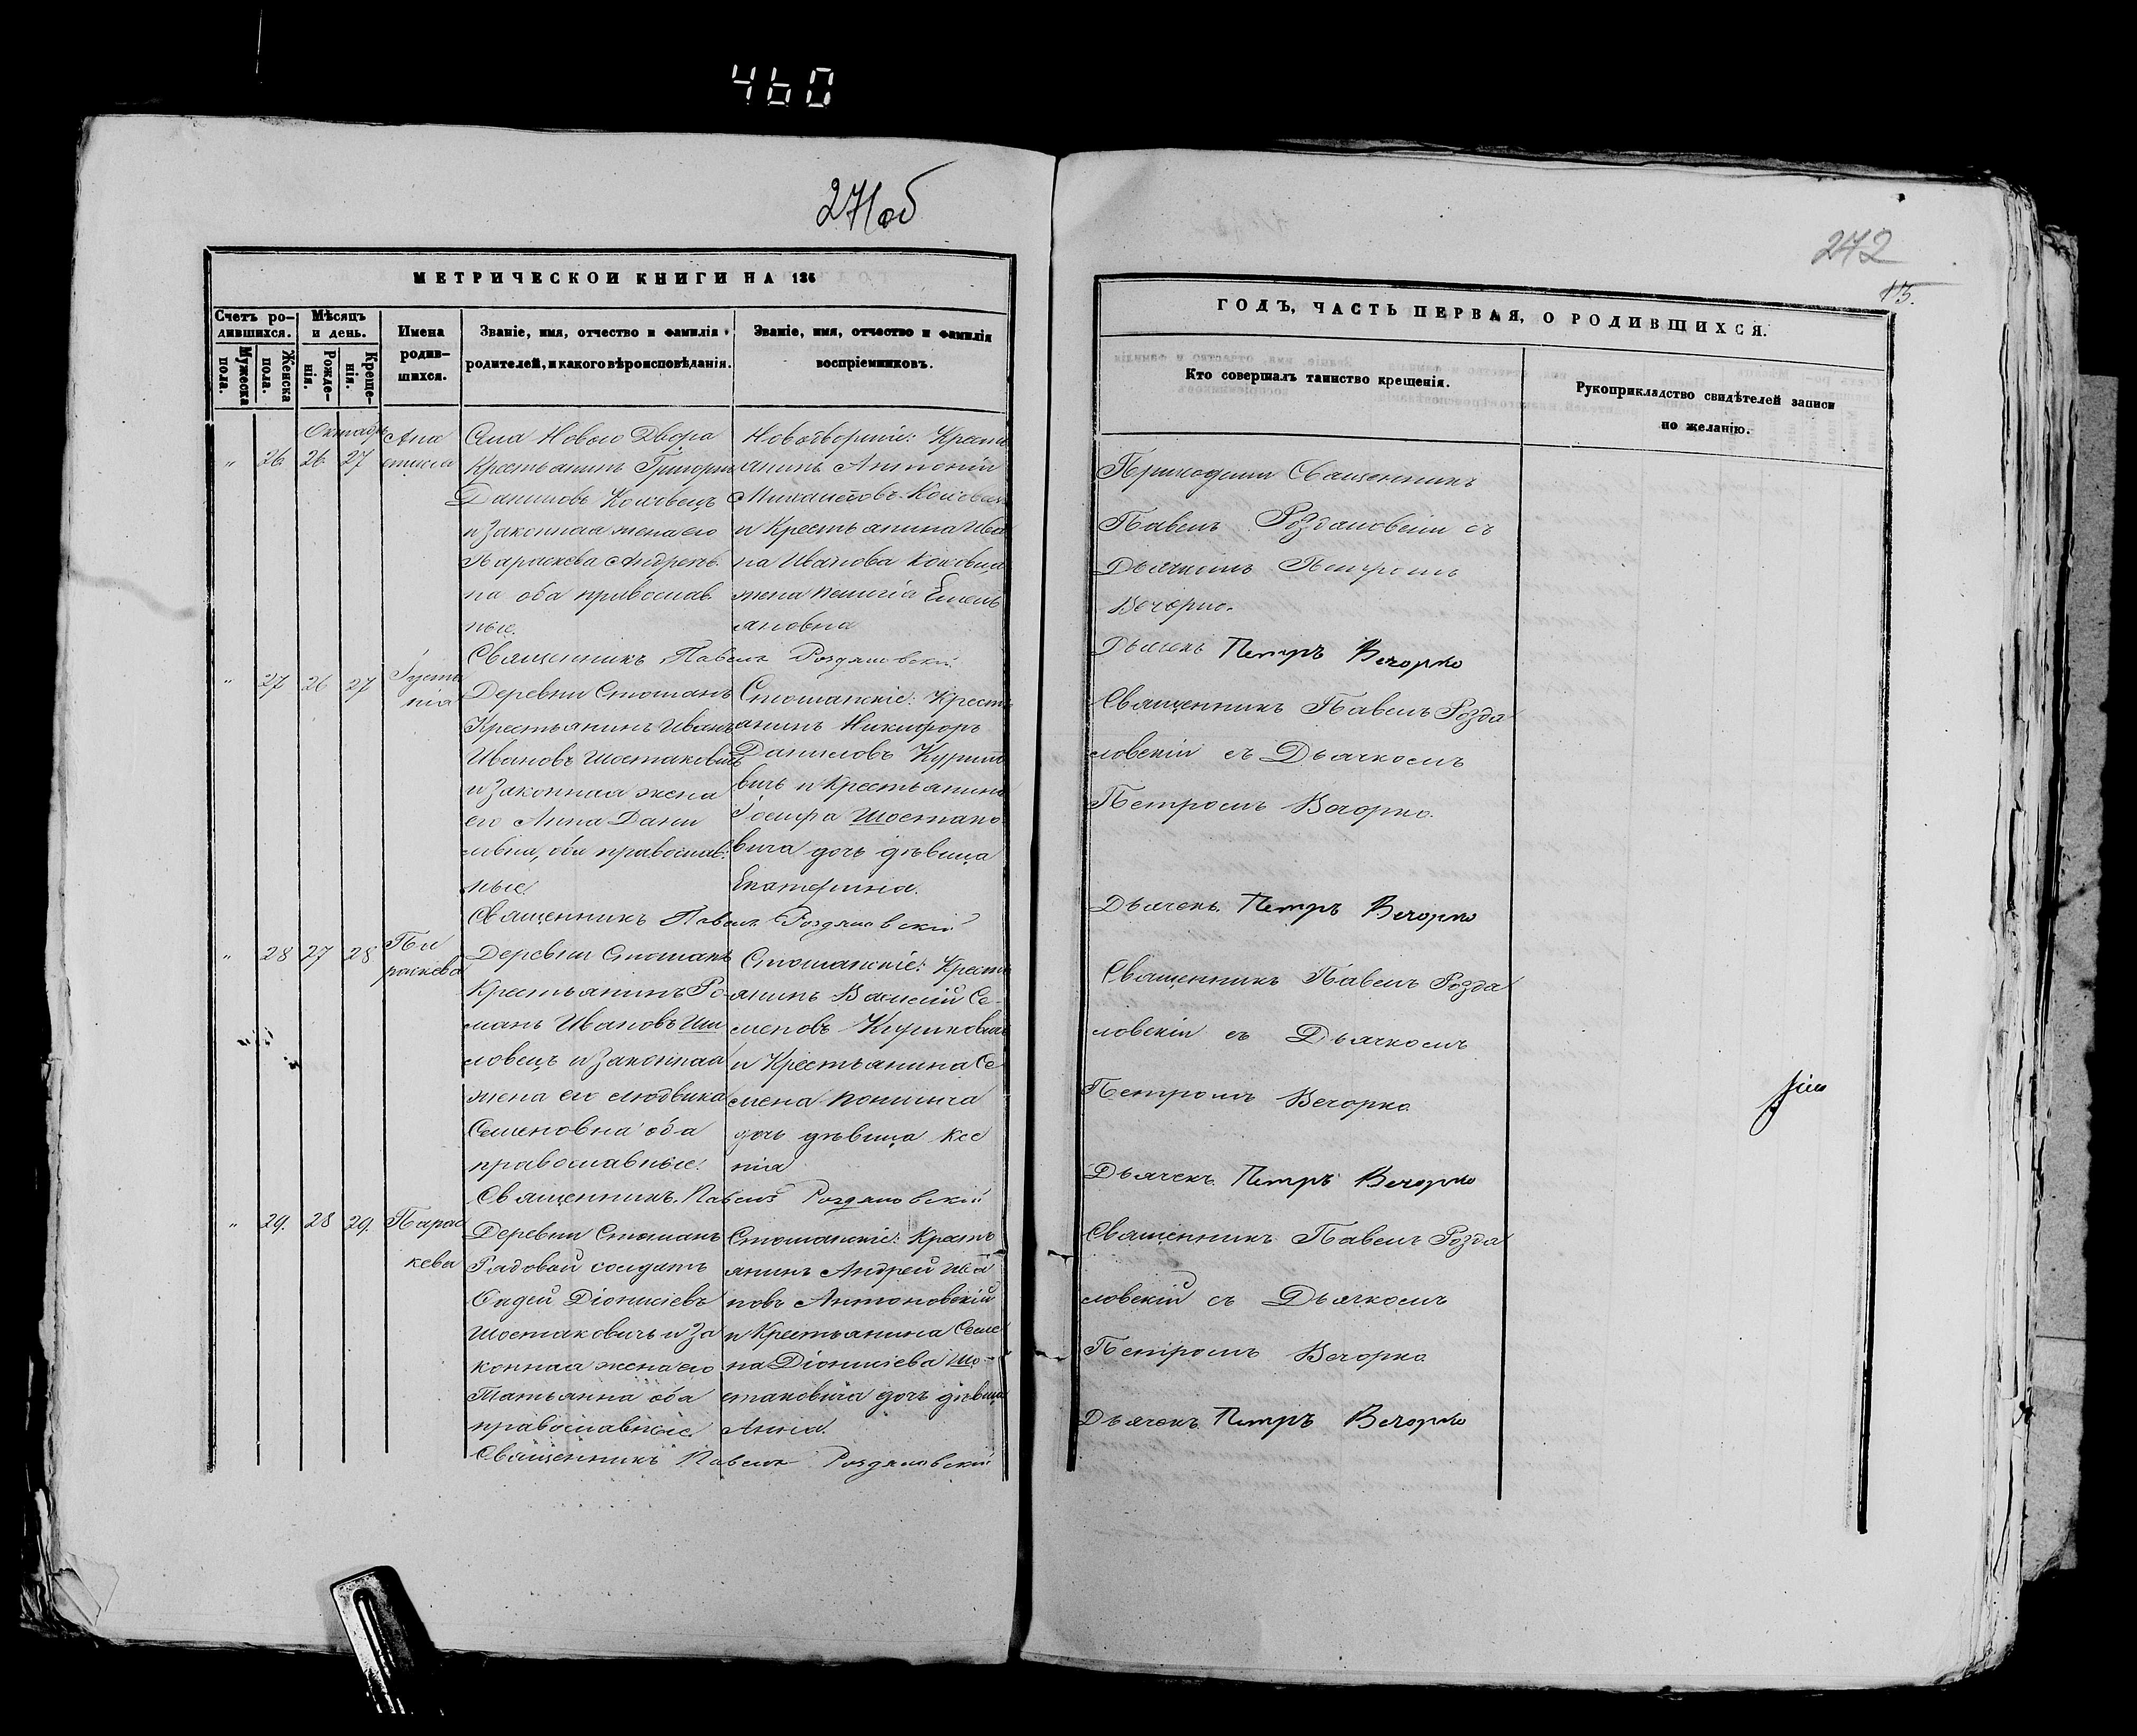 460
271об
МЕТРИЧЕСКОЙ КНИГИ НА 186
Счетъ ро-
дившихся.
Мужеска
пола.
Женска
пола.
Мѣсяцъ
и день.
Рожде-
нія.
Креще-
нія.
Имена
родив-
шихся.
Званіе, имя, отчество и фамилія
родителей, и какого вѣроисповѣданія.
Званіе, имя, отчество и фамилія
воспріемниковъ.
Октябрь
" 26 26 27
Ана
стасія
Села Новаго Двора
Крестьянинъ Григорій
Даниловъ
и законная жена его
Параскева Андреев
на оба православ
ные.
Новодворскіе: Кресть
янинъ Антоній
Михайловъ
и Крестьянина Ива
на Иванова
жена Емель
яновна
Священникъ Павелъ Роздяловскій
" 27 26 27
Іуста
нія
Деревни Стошанъ
Крестьянинъ Иванъ
Ивановъ Шостаковичъ
и законная жена
его Анна Дани
ловна, оба православ
ные.
Стошанскіе: Кресть
янинъ Никифоръ
Даниловъ
вичъ и Крестьянина
Іосифа Шостако
вича дочь дѣвица
Екатерина.
Священникъ Павелъ Роздяловскій
" 28 27 28
Па
раскева
Деревни Стошанъ
Крестьянинъ Ро-
манъ Ивановъ Ши
ловецъ и законная
жена его Людвика
Семеновна оба
православные.
Стошанскіе: Кресть
янинъ Василій Се-
меновъ
и Крестьянина Се
мена
дочь дѣвица Ксе
нія
Священникъ Павелъ Роздяловскій
" 29. 28 29.
Парас
кева
Деревни Стошанъ
Рядовой солдатъ
Фадей Діонисіевъ
Шостаковичъ и за
конная жена его
Татьянна оба
православные.
Стошанскіе: Кресть
янинъ Андрей Ива
новъ Антоновскій
и Крестьянина Семе
на Діонисіева Шо-
стаковича дочь дѣвица
Анна.
Священникъ Павелъ Роздяловскій
272
13.
ГОДЪ, ЧАСТЬ ПЕРВАЯ, О РОДИВШИХСЯ.
Кто совершалъ таинство крещенія.
Рукоприкладство свидѣтелей записи
по желанію.
Приходскій Священникъ
Павелъ Роздаловскій съ
Дьячкомъ Петромъ
Вечорко.
Дьячекъ Петръ Вечорко
Священникъ Павелъ Розда
ловскій съ Дьячкомъ
Петромъ Вечорко.
Дьячекъ Петръ Вечорко
Священникъ Павелъ Розда
ловскій съ Дьячкомъ
Петромъ Вечорко
Дьячекъ Петръ Вечорко
Священникъ Павелъ Розда
ловскій съ Дьячкомъ
Петромъ Вечорко
Дьячекъ Петръ Вечорко